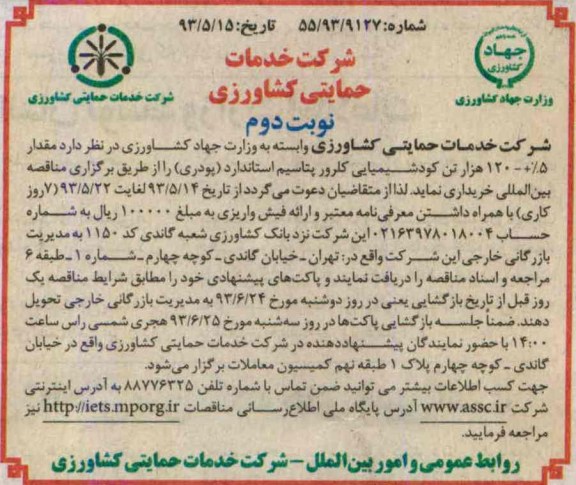 شماره: ۵۵/۹۳/۹۱۲۷ تاریخ: ۹۳/۵/۱۵
جهاد
کشاورزی
وزارت جهاد کشاورزی
شرکت خدمات
حمایتی کشاورزی
شرکت خدمات حمایتی کشاورزی
نوبت دوم
شرکت خدمات حمایتی کشاورزی وابسته به وزارت جهاد کشاورزی در نظر دارد مقدار
۵٪+- ۱۲۰ هزار تن کودشیمیایی کلرور پتاسیم استاندارد (پودری) را از طریق برگزاری مناقصه
بین‌المللی خریداری نماید. لذا از متقاضیان دعوت می‌گردد از تاریخ ۹۳/۵/۱۴ لغایت ۹۳/۵/۲۲ (۷روز
کاری) با همراه داشتن معرفی‌نامه معتبر و ارائه فیش واریزی به مبلغ ۱۰۰۰۰۰۰ ریال به شماره
حساب ۰۲۱۶۳۹۷۸۰۱۸۰۰۴ این شرکت نزد بانک کشاورزی شعبه گاندی کد ۱۱۵۰ به مدیریت
بازرگانی خارجی این شرکت واقع در: تهران ـ خیابان گاندی ـ کوچه چهارم ـ شماره ۱ ـ طبقه ۶
مراجعه و اسناد مناقصه را دریافت نمایند و پاکت‌های پیشنهادی خود را مطابق شرایط مناقصه یک
روز قبل از تاریخ بازگشایی یعنی در روز دوشنبه مورخ ۹۳/۶/۲۴ به مدیریت بازرگانی خارجی تحویل
دهند. ضمناً جلسه بازگشایی پاکت‌ها در روز سه‌شنبه مورخ ۹۳/۶/۲۵ هجری شمسی راس ساعت
۱۴:۰۰ با حضور نمایندگان پیشنهاددهنده در شرکت خدمات حمایتی کشاورزی واقع در خیابان
گاندی ـ کوچه چهارم پلاک ۱ طبقه نهم کمیسیون معاملات برگزار می‌شود.
جهت کسب اطلاعات بیشتر می توانید ضمن تماس با شماره تلفن ۸۸۷۷۶۳۲۵ به آدرس اینترنتی
شرکت www.assc.ir آدرس پایگاه ملی اطلاع‌رسانی مناقصات http://iets.mporg.ir نیز
مراجعه فرمایید.
روابط عمومی و امور بین‌الملل – شرکت خدمات حمایتی کشاورزی